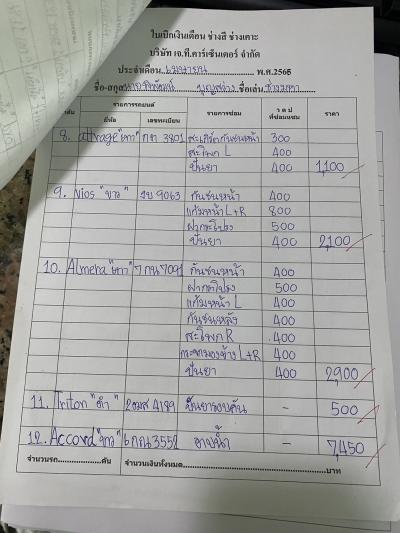 ใบเบิกเงินเดือน ช่างสี ช่างเคาะ
บริษัท เจ.ที.คาร์เซ็นเตอร์ จำกัด
ประจำเดือน เมษายน พ.ศ.2565
ชื่อ-สกุล บุญสว่าง ชื่อเล่น ช่างมหา
ลำดับ รายการรถยนต์ รายการซ่อม ว ด ป ที่ซ่อมแซม ราคา
ยี่ห้อ เลขทะเบียน
8. attrage "เทา" กท 3801 สเกิร์ตกันชนหน้า 300
สะโพก L 400
ปั่นยา 400 1,100
9. Vios "ขาว" ฎบ 9063 กันชนหน้า 400
แก้มหน้า L+R 800
ฝากระโปรง 500
ปั่นยา 400 2,100
10. Almera "เทา" 7กน7091 กันชนหน้า 400
ฝากระโปรง 500
แก้มหน้า L 400
กันชนหลัง 400
สะโพก R 400
กระจกมองข้าง L+R 400
ปั่นยา 400 2,900
11. Triton "ดำ" 2ฒศ 4189 ปั่นยารอบคัน - 500
12. Accord "ขาว" 6กณ 3552 อาบน้ำ - 7,450
จำนวนรถ....................คัน จำนวนเงินทั้งหมด....................บาท